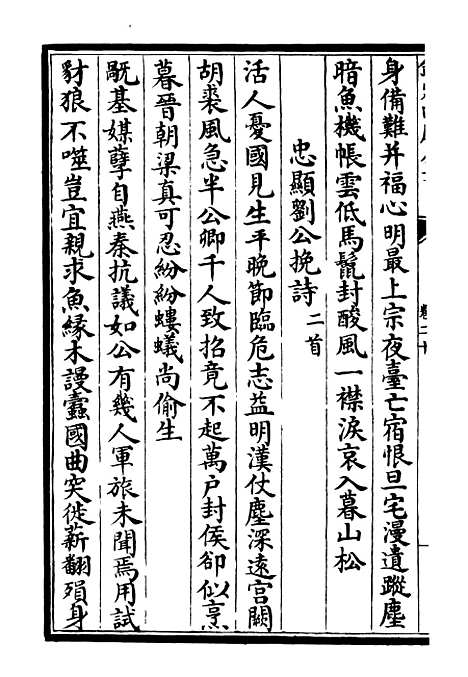 身備難并福心明最上宗夜臺亡宿恨旦宅漫遺蹤塵
暗魚機帳雲低馬鬛封酸風一襟淚哀入暮山松
忠顯劉公挽詩二首
活人憂國見生平晚節臨危志益明漢仗塵深遠宫闕
胡裘風急半公卿千人致招竟不起萬户封侯卻似烹
暮晉朝梁真可忍紛紛螻蟻尚偷生
厫基媒孽自燕秦抗議如公有幾人軍旅未聞焉用試
豺狼不噬豈宜親求魚緣木謾蠹國曲突徙薪翻殞身
卷二十